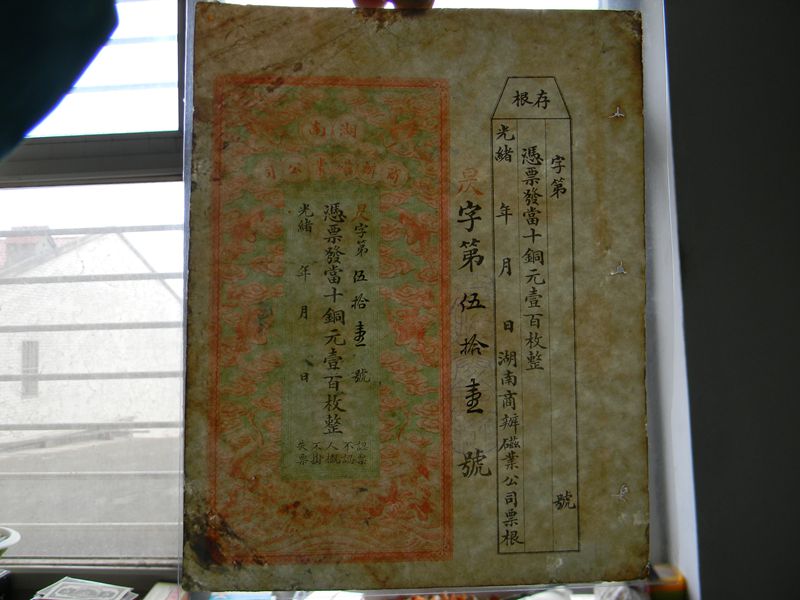 存根
字第 號
憑票發當十銅元壹百枚整
光緒 年 月 日 湖南商辦磁業公司票根
昃字第伍拾壹號
湖南
商辦磁業公司
昃字第伍拾壹號
憑票發當十銅元壹百枚整
光緒 年 月 日
認票
不認
人概
不掛
失票